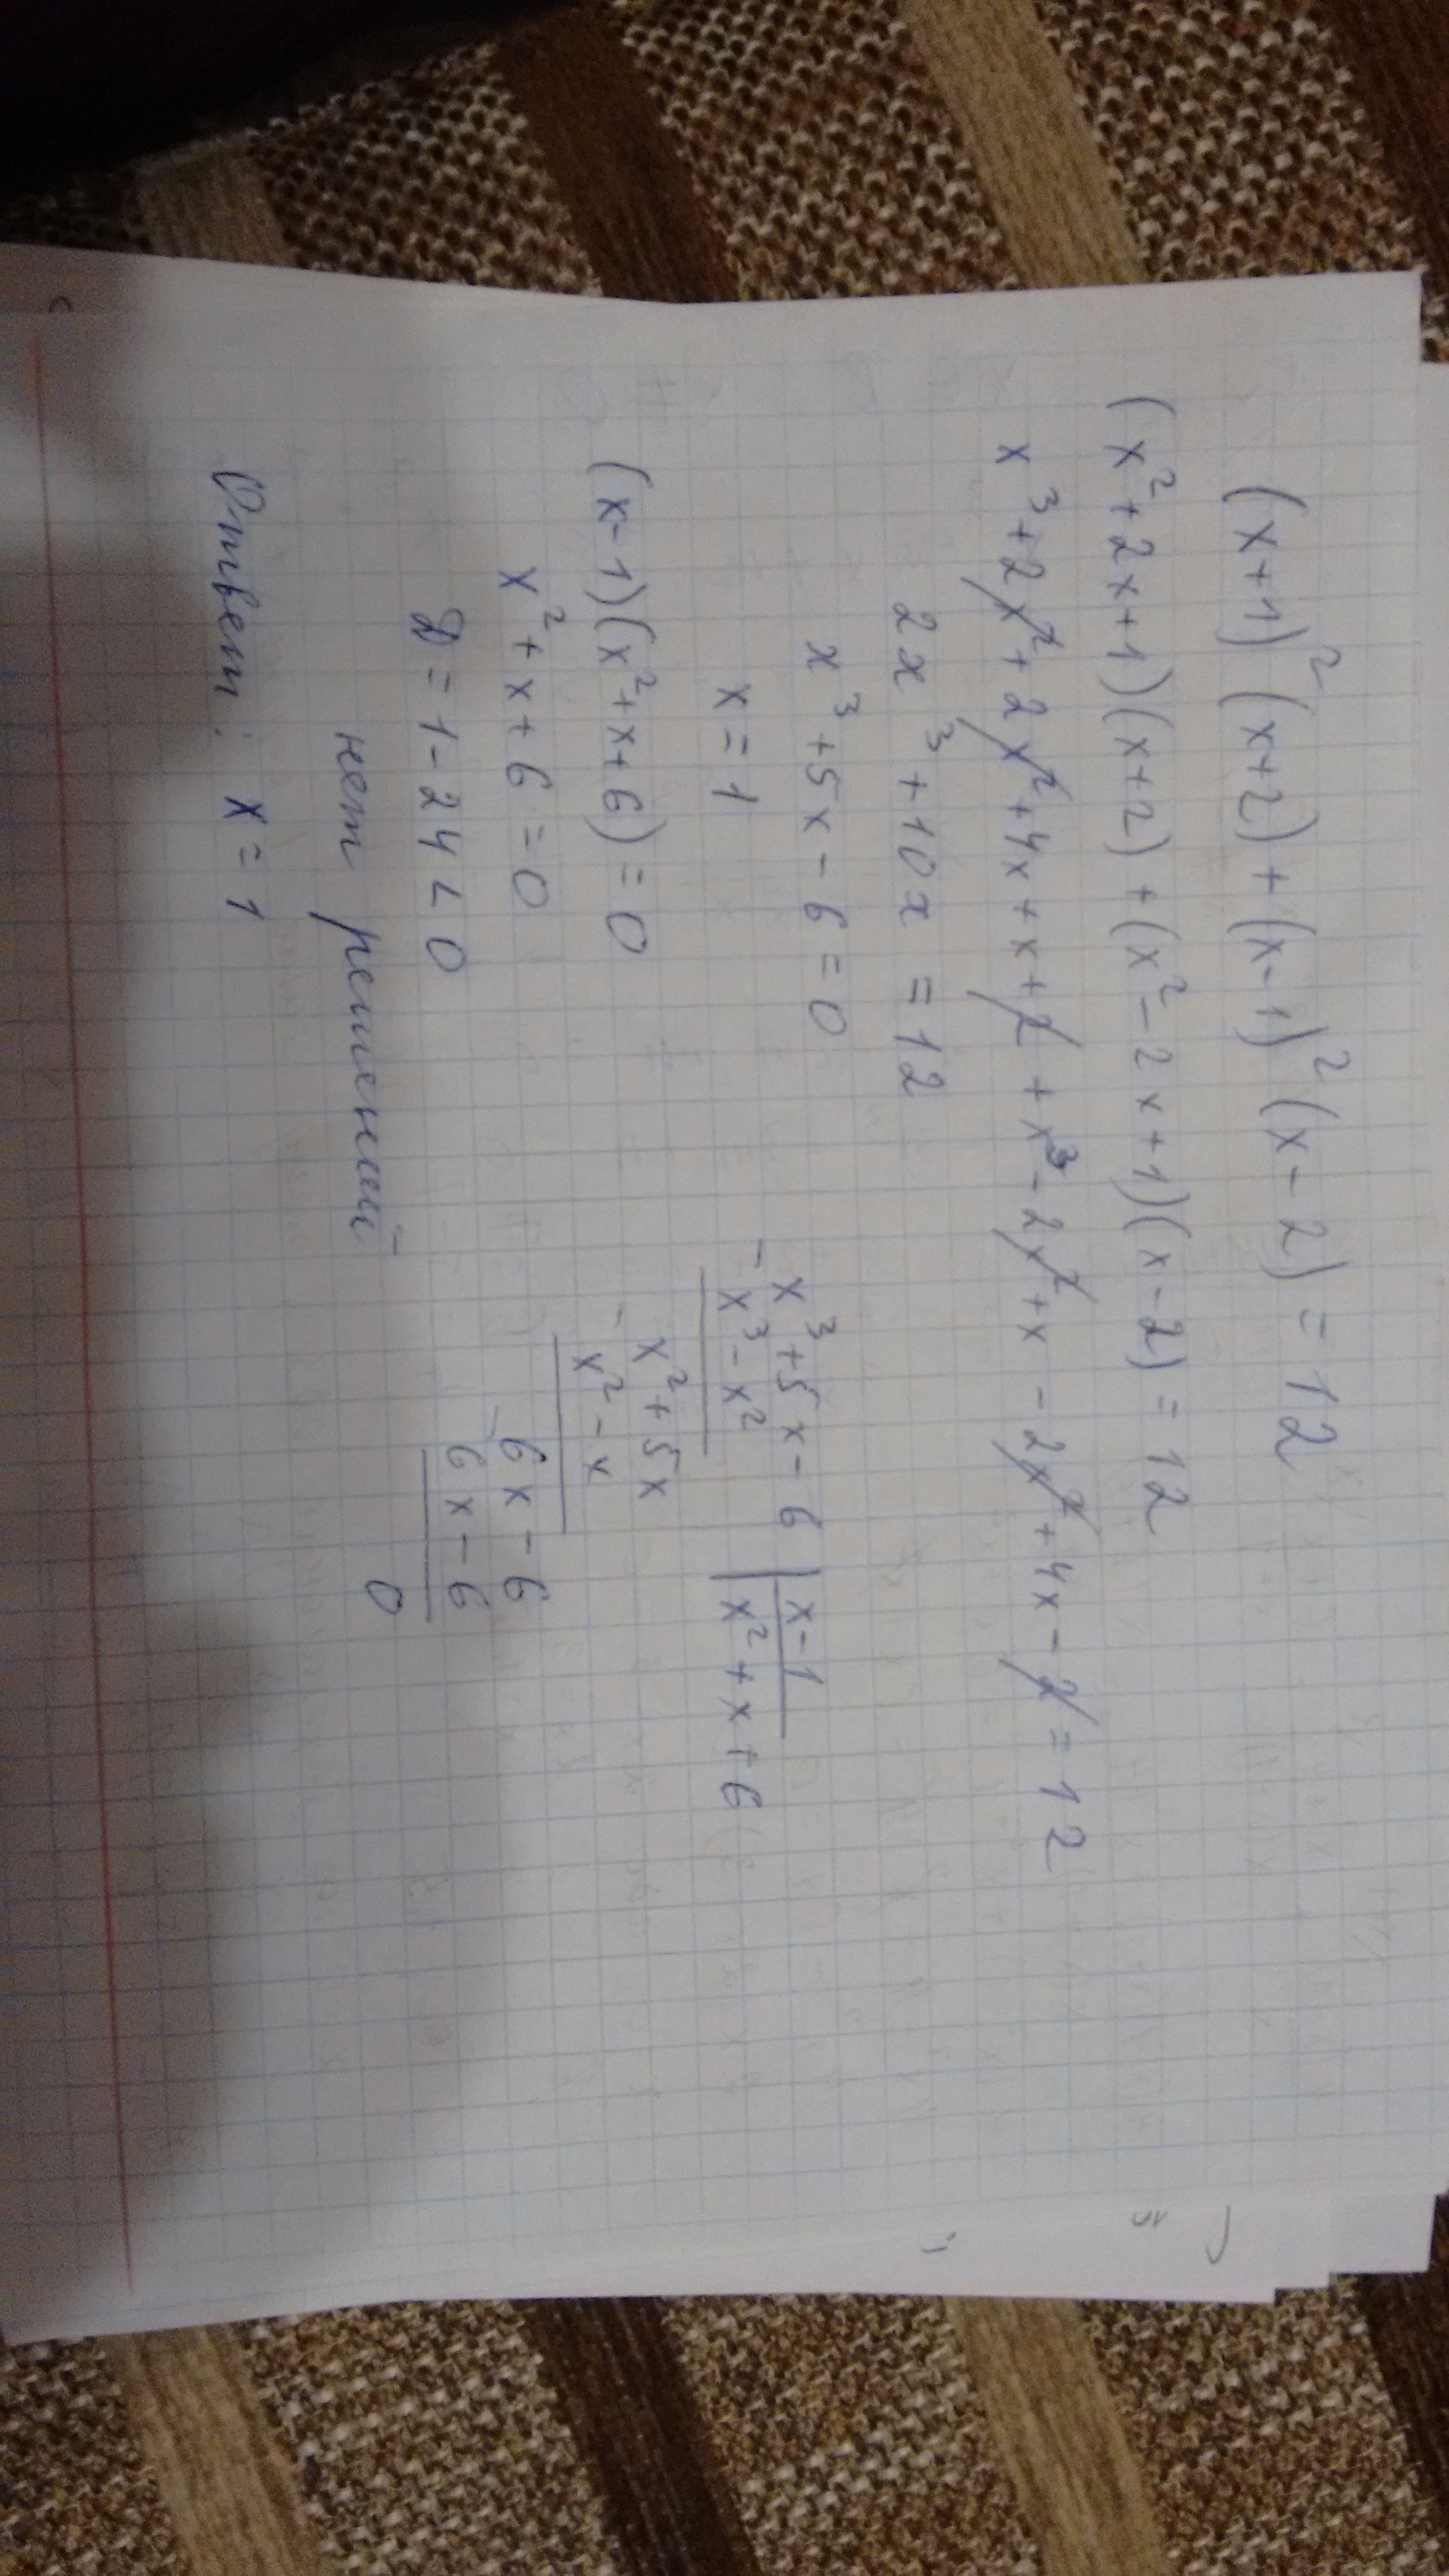 (x+1)²(x+2)+(x-1)²(x-2)=12
(x²+2x+1)(x+2)+(x²-2x+1)(x-2)=12
x³+2x²+2x²+4x+x+2+x³-2x²+x-2x²+4x-2=12
2x³+10x=12
x³+5x-6=0
x=1
(x-1)(x²+x+6)=0
x²+x+6=0
D=1-24<0
нет решений
x³+5x-6 | x-1
- x³-x² | x²+x+6
x²+5x
- x²-x
6x-6
6x-6
0
Ответ: x=1